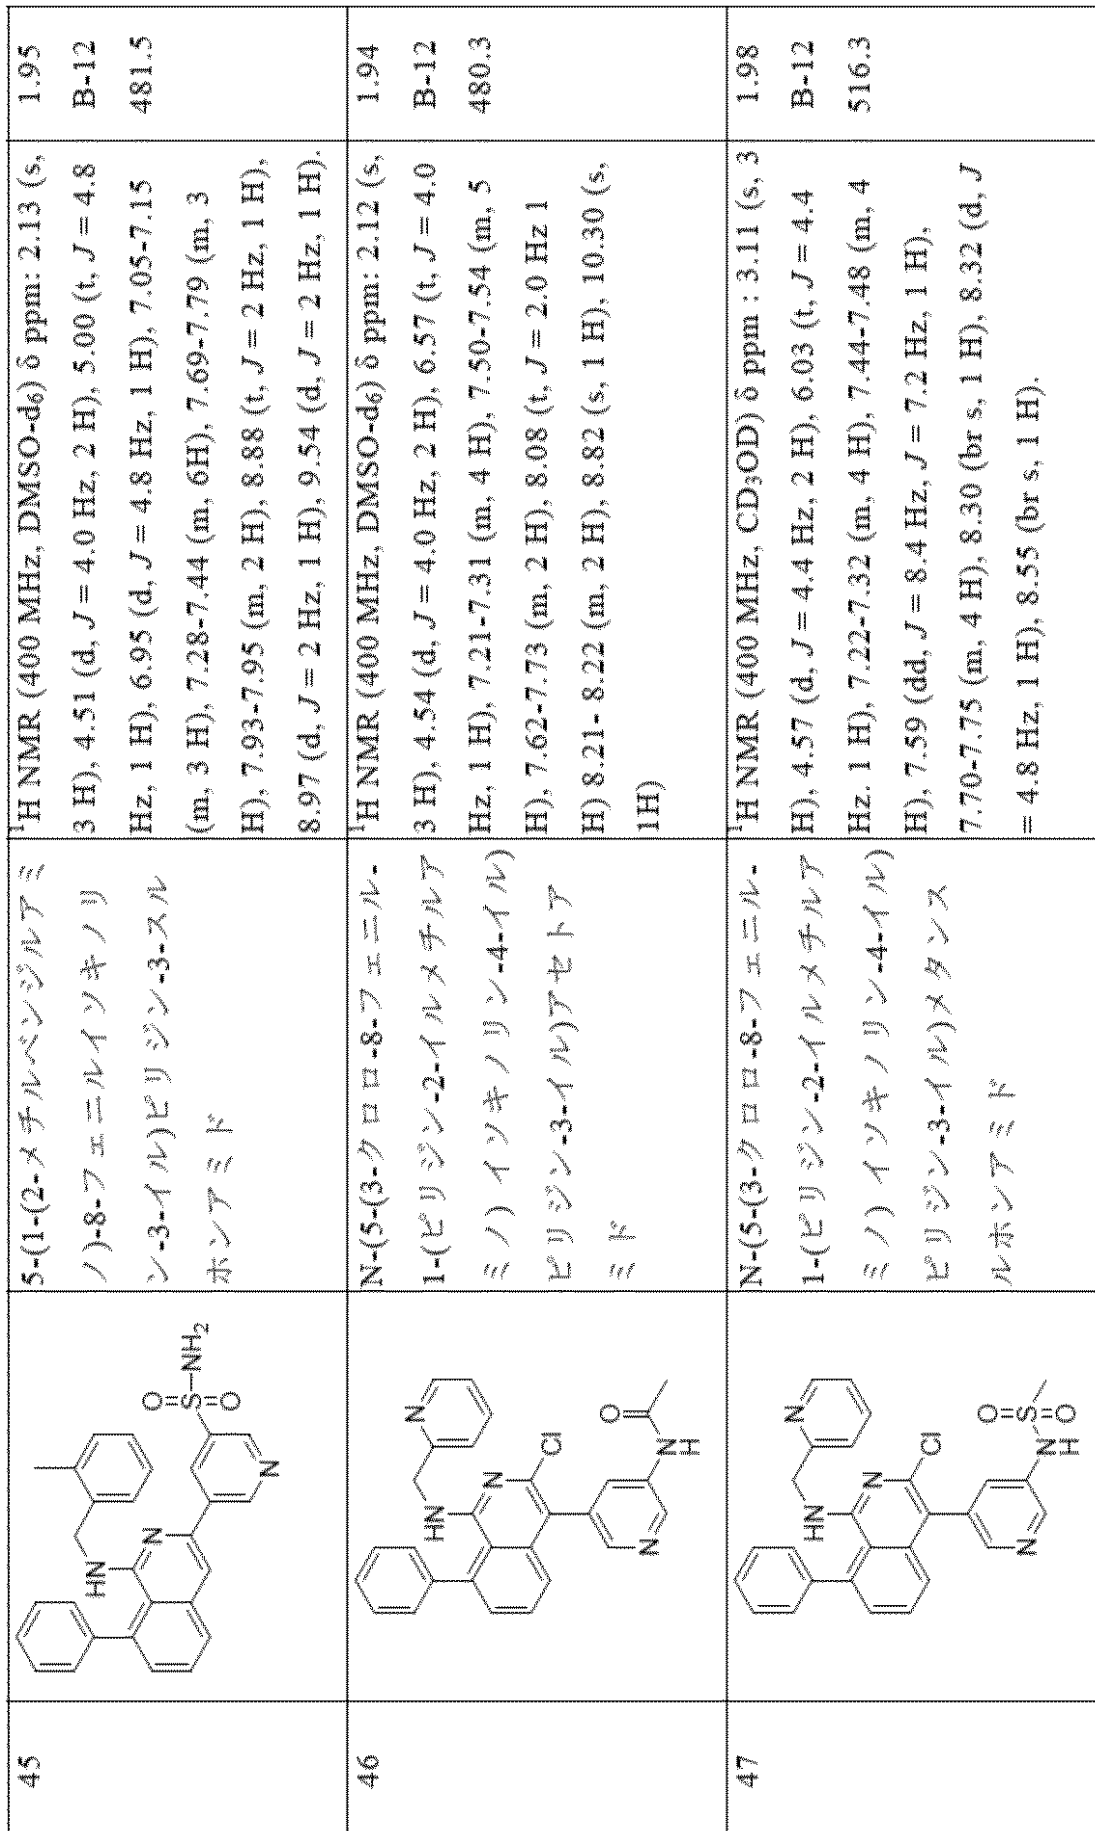 45
HN
N
N
O
S
O
NH2
5-(1-(2-メチルベンジルアミ
ノ)-8-フェニルイソキノリ
ン-3-イル)ピリジン-3-スル
ホンアミド
¹H NMR (400 MHz, DMSO-d₆) δ ppm: 2.13 (s,
3 H), 4.51 (d, J = 4.0 Hz, 2 H), 5.00 (t, J = 4.8
Hz, 1 H), 6.95 (d, J = 4.8 Hz, 1 H), 7.05-7.15
(m, 3 H), 7.28-7.44 (m, 6H), 7.69-7.79 (m, 3
H), 7.93-7.95 (m, 2 H), 8.88 (t, J = 2 Hz, 1 H),
8.97 (d, J = 2 Hz, 1 H), 9.54 (d, J = 2 Hz, 1 H).
1.95
B-12
481.5
46
HN
N
N
Cl
N
O
N
H
N-(5-(3-クロロ-8-フェニル-
1-(ピリジン-2-イルメチルア
ミノ) イソキノリン-4-イル)
ピリジン-3-イル)アセトア
ミド
¹H NMR (400 MHz, DMSO-d₆) δ ppm: 2.12 (s,
3 H), 4.54 (d, J = 4.0 Hz, 2 H), 6.57 (t, J = 4.0
Hz, 1 H), 7.21-7.31 (m, 4 H), 7.50-7.54 (m, 5
H), 7.62-7.73 (m, 2 H), 8.08 (t, J = 2.0 Hz 1
H) 8.21- 8.22 (m, 2 H), 8.82 (s, 1 H), 10.30 (s,
1H)
1.94
B-12
480.3
47
HN
N
N
Cl
N
O
S
O
N
H
N-(5-(3-クロロ-8-フェニル-
1-(ピリジン-2-イルメチルア
ミノ) イソキノリン-4-イル)
ピリジン-3-イル)メタンス
ルホンアミド
¹H NMR (400 MHz, CD₃OD) δ ppm : 3.11 (s, 3
H), 4.57 (d, J = 4.4 Hz, 2 H), 6.03 (t, J = 4.4
Hz. 1 H), 7.22-7.32 (m, 4 H), 7.44-7.48 (m, 4
H), 7.59 (dd, J = 8.4 Hz, J = 7.2 Hz, 1 H),
7.70-7.75 (m, 4 H), 8.30 (br s, 1 H), 8.32 (d, J
= 4.8 Hz, 1 H), 8.55 (br s, 1 H).
1.98
B-12
516.3